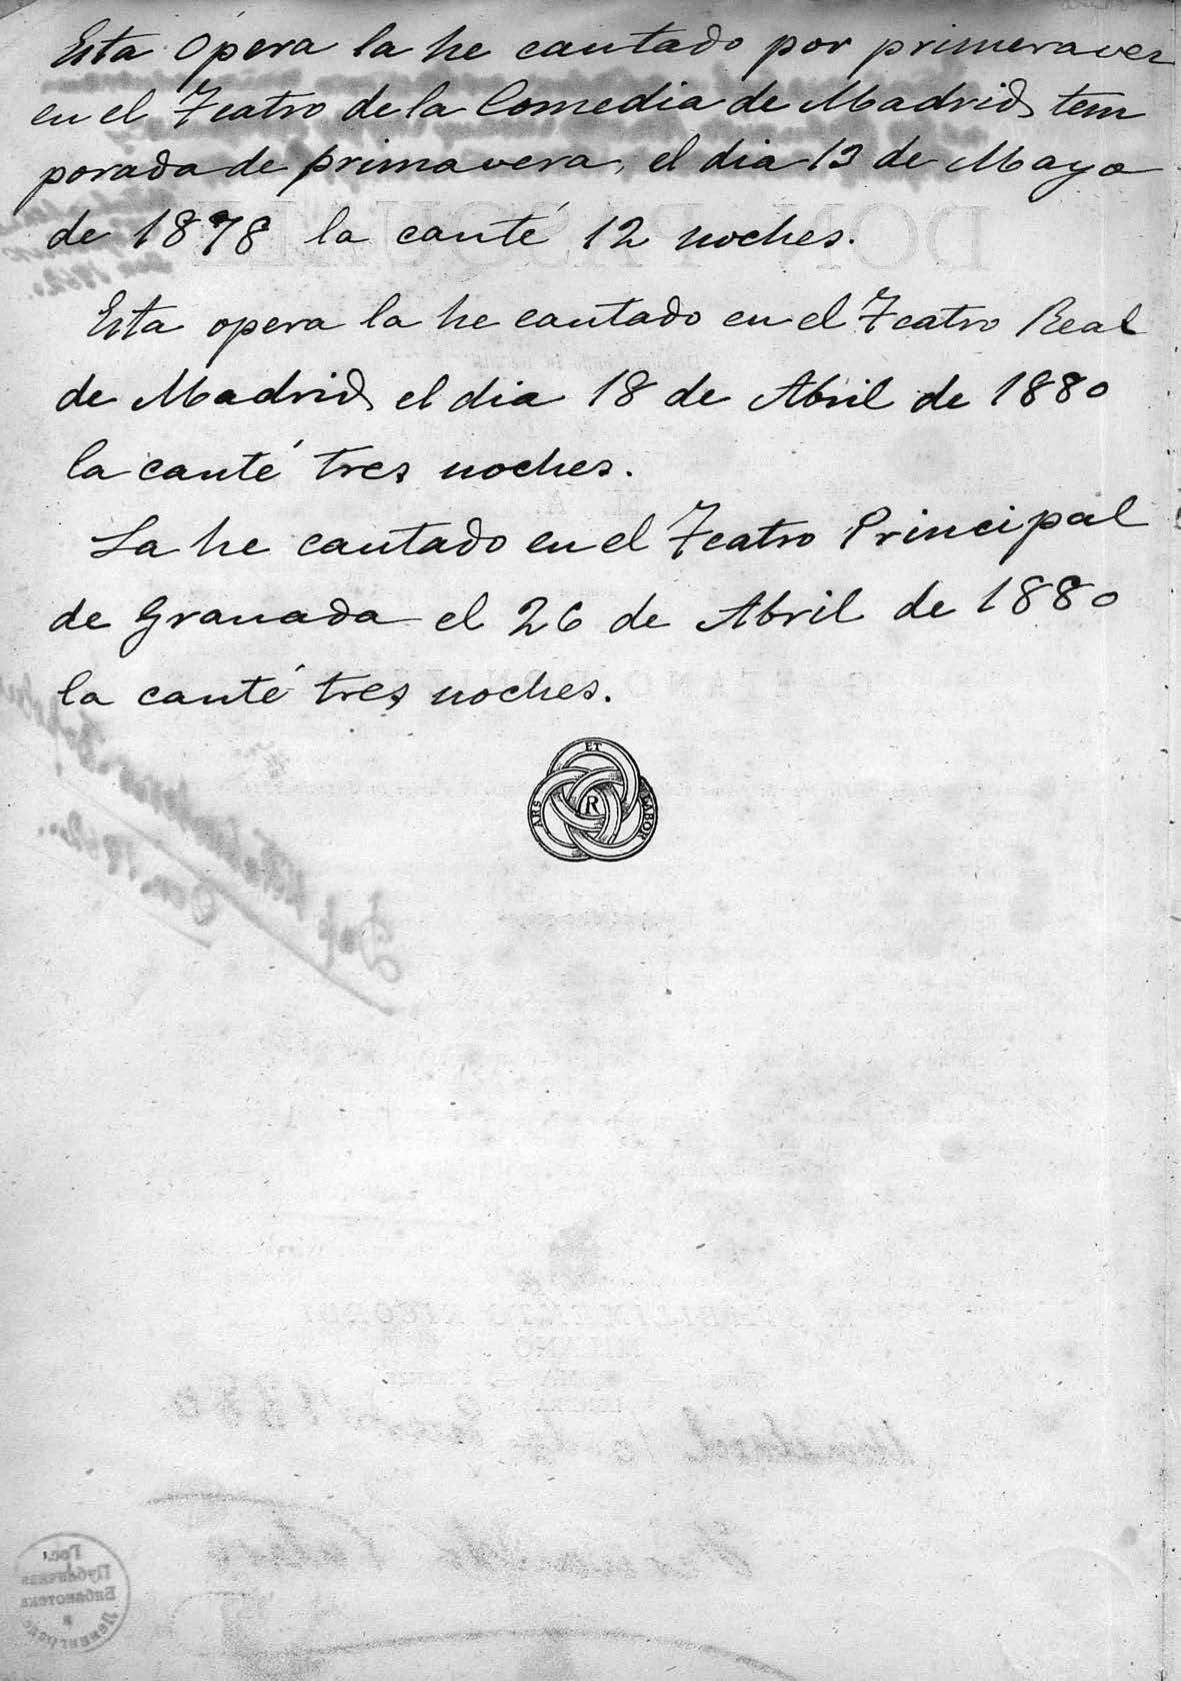 Esta Opera la he cantado por primera vez
en el Teatro de la Comedia de Madrid, tem
porada de primavera, el dia 13 de Mayo
de 1878 la canté 12 noches.
Esta opera la he cantado en el Teatro Real
de Madrid, el dia 18 de Abril de 1880
la canté tres noches.
La he cantado en el Teatro Principal
de Granada el 26 de Abril de 1880
la canté tres noches.
ARS ET LABOR
R